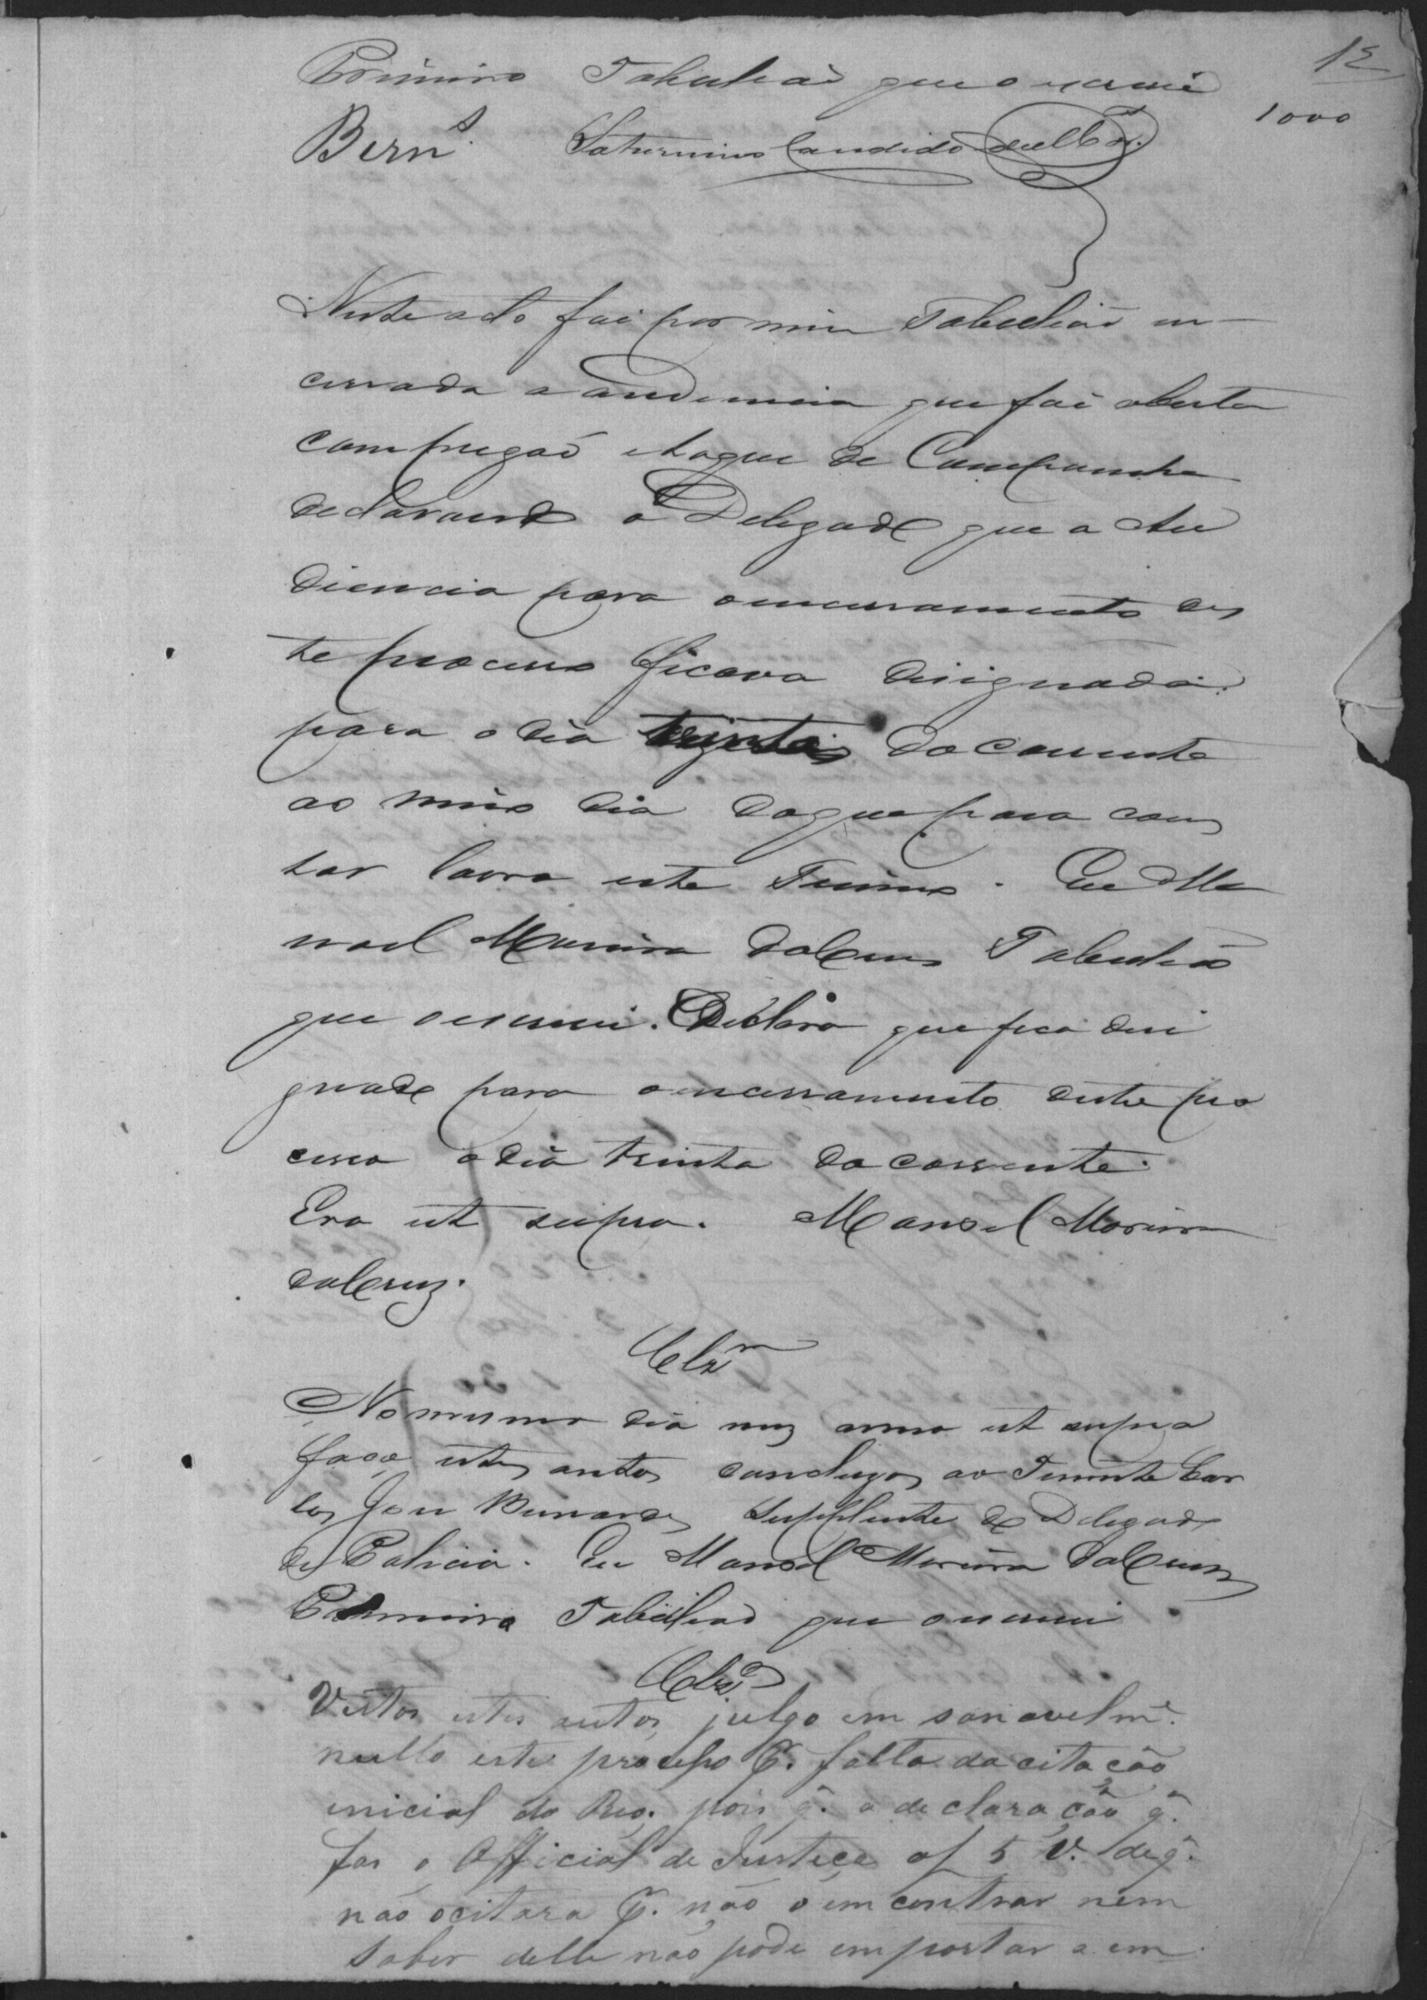 12
Primeiro Tabeliaõ que o escrevi
1000
Bern.s Saturnino Candido
Neste acto foi por mim Tabeliaõ en
cerrada a audiencia que foi aberta
com pregaõ e toque de Campainha
declarando o Delegado que a Au
diencia para o encerramento des
te processo ficava designada
para o dia trinta do corrente
ao meio dia do que para cons
tar lavro este Termo. Eu Ma
noel Moreira da Cruz Tabeliaõ
que o escrevi. Declaro que fica desi
gnado para o encerramento deste pro
cesso o dia trinta do corrente.
Era ut supra. Manoel Moreira
da Cruz.
Clzm
No mesmo dia mez anno ut supra
faço estes autos conclusos ao Tenente Car
los José Bernardes Supplente do Delegado
de Policia. Eu Manoel Moreira da Cruz
Primeiro Tabeliaõ que o escrevi
Clzo
Vistos estes autos, julgo em sanavelme.
nullo este processo p. falta da citação
inicial do Reo. pois q. a declaração q.
faz o Official de Justiça af 5 v. de q.
não o citara p. não o encontrar nem
saber delle não pode importar a em